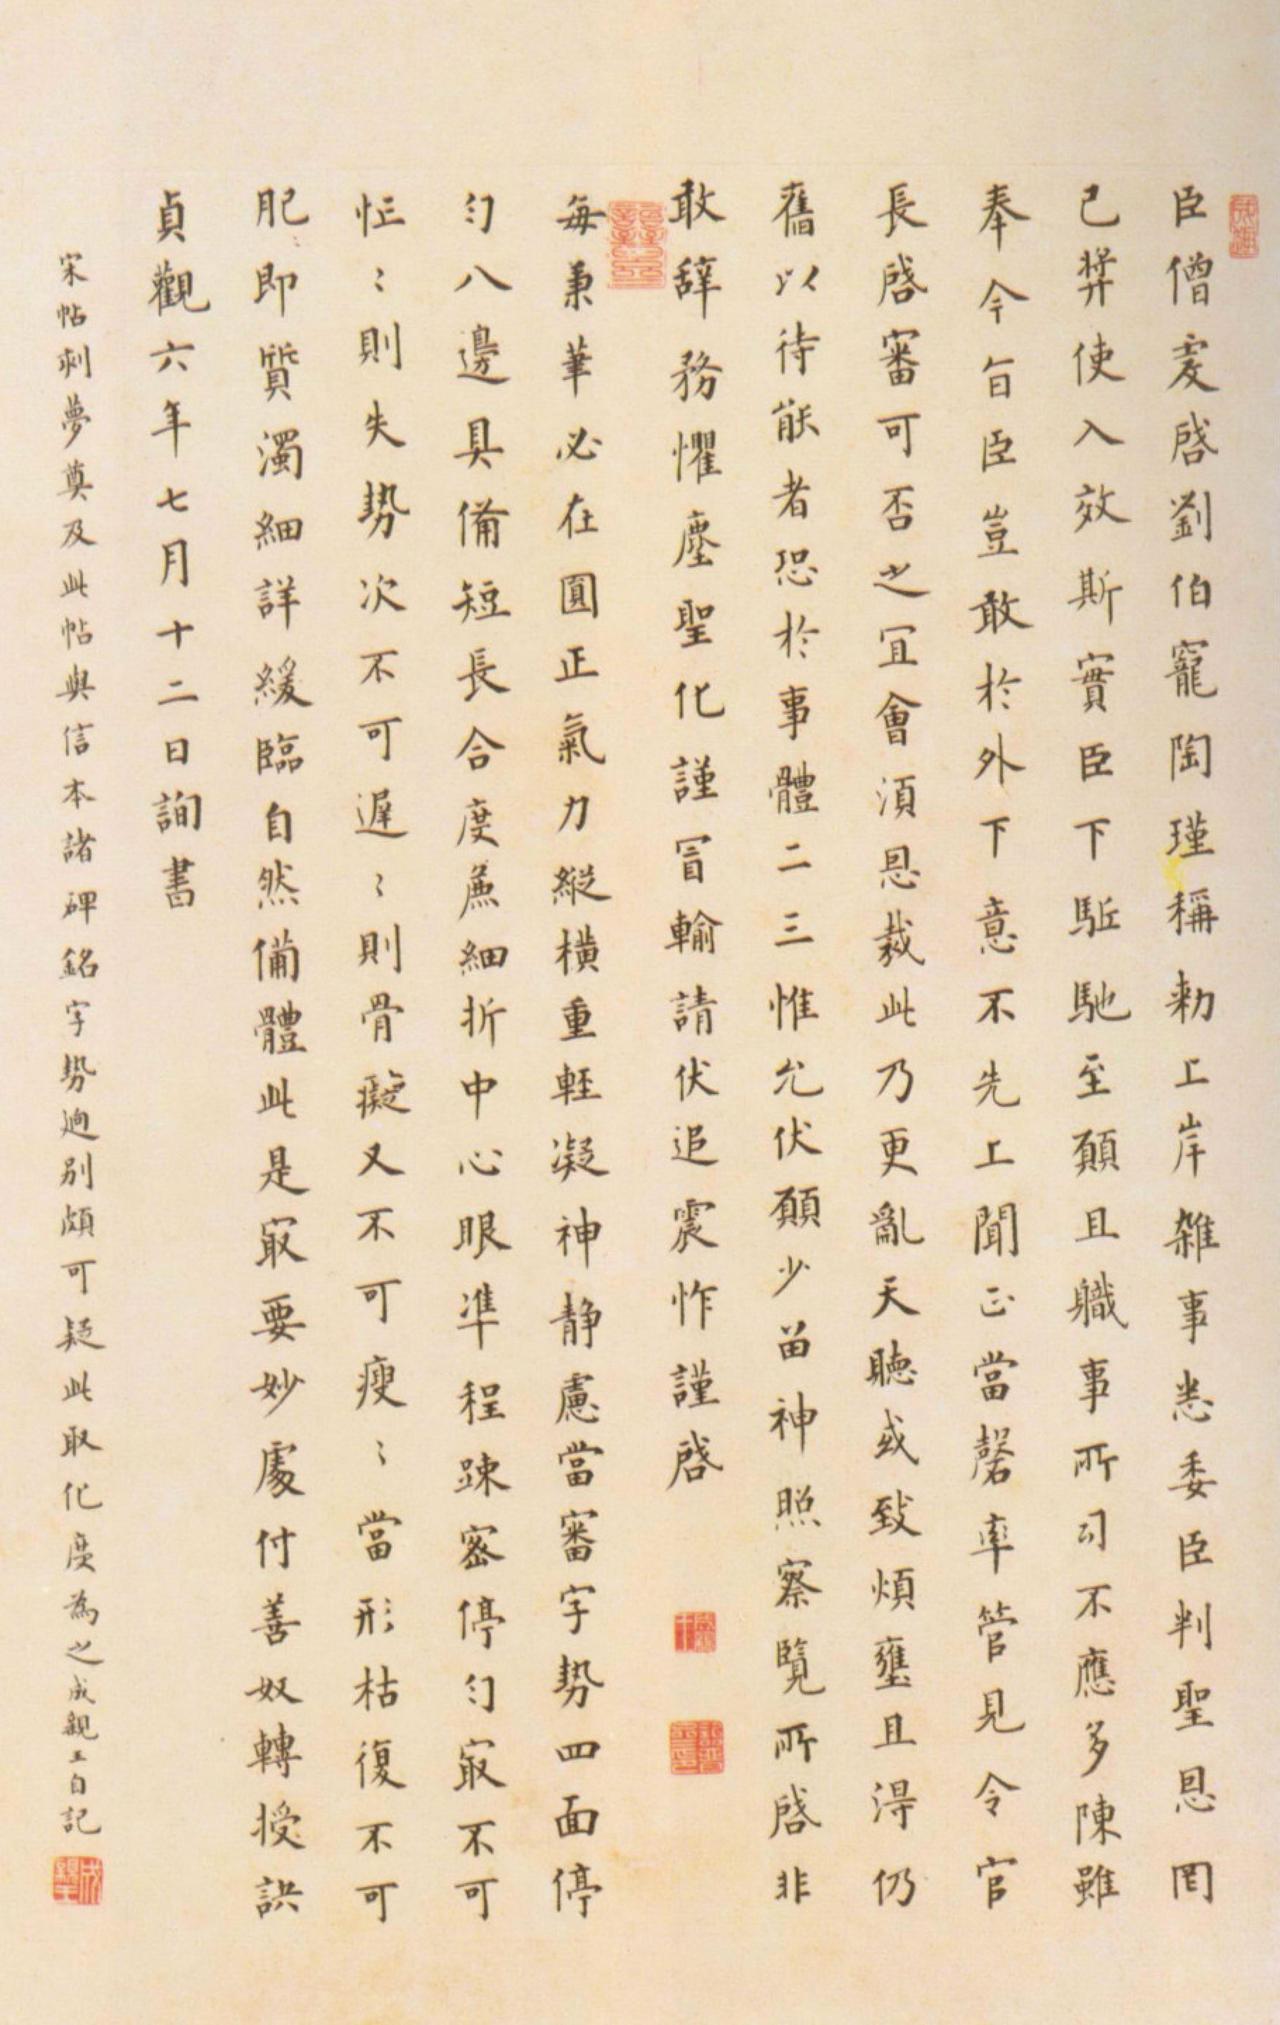 臣僧虔啓劉伯寵陶瑾稱勑上岸雜事悉委臣判聖恩罔
已弉使入效斯實臣下駈馳至願且職事所司不應多陳雖
奉令旨臣豈敢於外下意不先上聞正當罄率管見令官
長啓審可否之宜會須恩裁此乃更亂天聽或致煩壅且淂仍
舊以待能者恐於事體二三惟允伏願少留神照察覽所啓非
敢辞務懼塵聖化謹冒輸請伏追震怍謹啓
每秉筆必在圓正氣力縱橫重輕凝神静慮當審字勢四面停
匀八邊具備短長合度麁細折中心眼準程踈密停匀㝡不可
忙〻則失勢次不可遲〻則骨癡又不可瘦〻當形枯復不可
肥〻即質濁細詳緩臨自然備體此是㝡要妙處付善奴轉授訣
貞觀六年七月十二日詢書
宋帖刺夢奠及此帖與信本諸碑銘字勢逈別頗可疑此取化度為之成親王自記
成親王